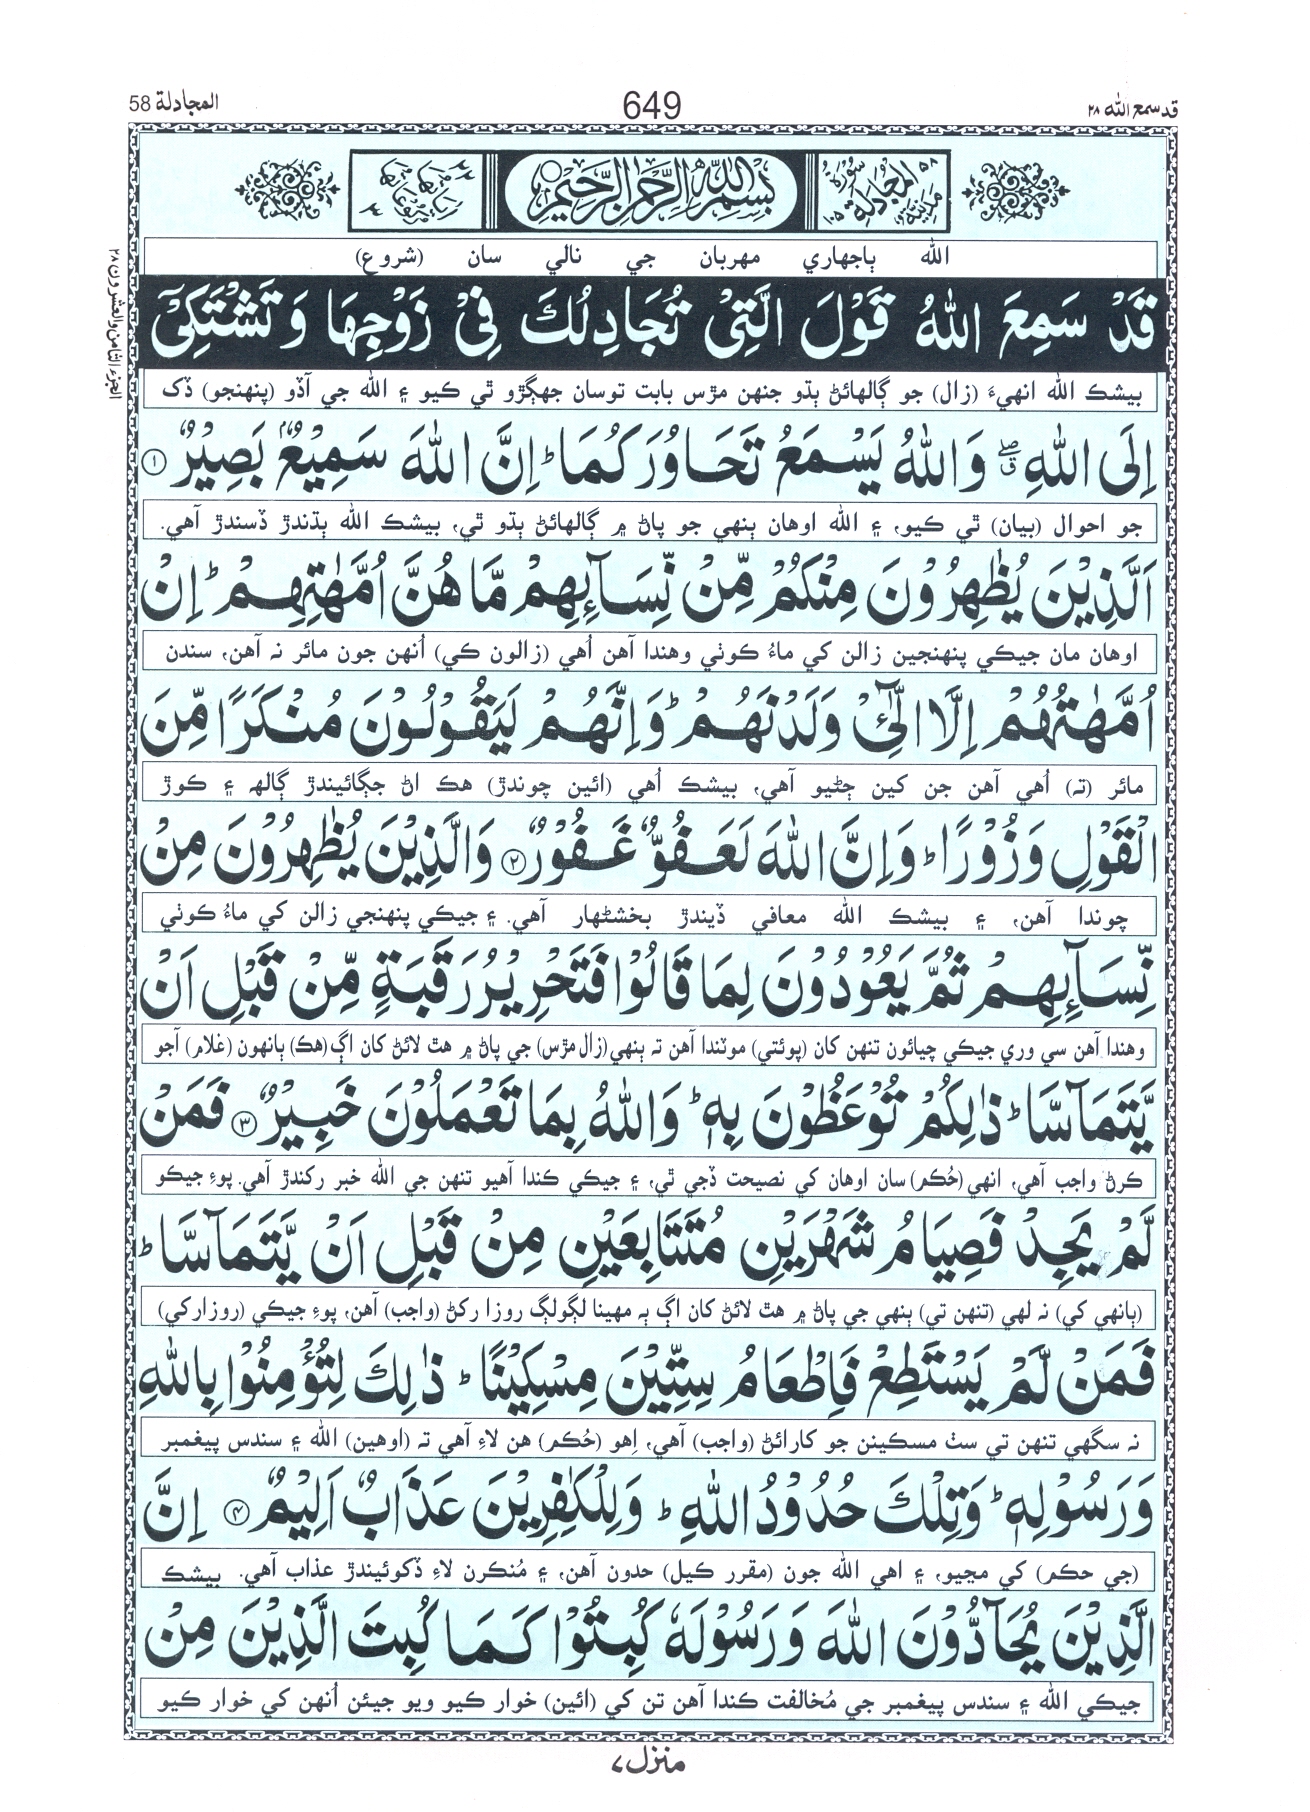 المجادلة 58
649
قد سمع الله ٢٨
سُوْرَةُ الْمُجَادِلَةِ مَدَنِيَّةٌ
بِسْمِ اللهِ الرَّحْمٰنِ الرَّحِيْمِ
الجزء الثامن والعشرون ٢٨
الله ٻاجهاري مهربان جي نالي سان (شروع)
قَدْ سَمِعَ اللهُ قَوْلَ الَّتِیْ تُجَادِلُكَ فِیْ زَوْجِهَا وَ تَشْتَكِیْۤ
بيشڪ الله انهيءَ (زال) جو ڳالهائڻ ٻڌو جنهن مڙس بابت توسان جهڳڙو ٿي ڪيو ۽ الله جي آڏو (پنهنجو) ڏک
اِلَی اللهِ ۖۗ وَاللهُ یَسْمَعُ تَحَاوُرَكُمَا ؕ اِنَّ اللهَ سَمِیْعٌۢ بَصِیْرٌ ۝١
جو احوال (بيان) ٿي ڪيو، ۽ الله اوهان ٻنهي جو پاڻ ۾ ڳالهائڻ ٻڌو ٿي، بيشڪ الله ٻڌندڙ ڏسندڙ آهي.
اَلَّذِیْنَ یُظٰهِرُوْنَ مِنْكُمْ مِّنْ نِّسَآئِهِمْ مَّا هُنَّ اُمَّهٰتِهِمْ ؕ اِنْ
اوهان مان جيڪي پنهنجين زالن کي ماءُ ڪوٺي وهندا آهن اُهي (زالون ڪي) اُنهن جون مائر نہ آهن، سندن
اُمَّهٰتُهُمْ اِلَّا الّٰٓئِیْ وَلَدْنَهُمْ ؕ وَاِنَّهُمْ لَیَقُوْلُوْنَ مُنْكَرًا مِّنَ
مائر (تہ) اُهي آهن جن کين ڄڻيو آهي، بيشڪ اُهي (ائين چوندڙ) هڪ اڻ جڳائيندڙ ڳالهہ ۽ ڪوڙ
الْقَوْلِ وَ زُوْرًا ؕ وَاِنَّ اللهَ لَعَفُوٌّ غَفُوْرٌ ۝٢ وَالَّذِیْنَ یُظٰهِرُوْنَ مِنْ
چوندا آهن، ۽ بيشڪ الله معافي ڏيندڙ بخشڻهار آهي. ۽ جيڪي پنهنجي زالن کي ماءُ ڪوٺي
نِّسَآئِهِمْ ثُمَّ یَعُوْدُوْنَ لِمَا قَالُوْا فَتَحْرِیْرُ رَقَبَةٍ مِّنْ قَبْلِ اَنْ
وهندا آهن سي وري جيڪي چيائون تنهن کان (پوئتي) موٽندا آهن تہ ٻنهي (زال مڙس) جي پاڻ ۾ هٿ لائڻ کان اڳ (هڪ) ٻانهون (غلام) آجو
یَّتَمَآسَّا ؕ ذٰلِكُمْ تُوْعَظُوْنَ بِهٖ ؕ وَاللهُ بِمَا تَعْمَلُوْنَ خَبِیْرٌ ۝٣ فَمَنْ
ڪرڻ واجب آهي، انهي (حُڪم) سان اوهان کي نصيحت ڏجي ٿي، ۽ جيڪي ڪندا آهيو تنهن جي الله خبر رکندڙ آهي. پوءِ جيڪو
لَّمْ یَجِدْ فَصِیَامُ شَهْرَیْنِ مُتَتَابِعَیْنِ مِنْ قَبْلِ اَنْ یَّتَمَآسَّا ؕ
(ٻانهي کي) نہ لهي (تنهن تي) ٻنهي جي پاڻ ۾ هٿ لائڻ کان اڳ ٻہ مهينا لڳولڳ روزا رکڻ (واجب) آهن، پوءِ جيڪي (روزا رکي)
فَمَنْ لَّمْ یَسْتَطِعْ فَاِطْعَامُ سِتِّیْنَ مِسْكِیْنًا ؕ ذٰلِكَ لِتُؤْمِنُوْا بِاللهِ
نہ سگهي تنهن تي سٺ مسڪينن جو کارائڻ (واجب) آهي، اِهو (حُڪم) هن لاءِ آهي تہ (اوهين) الله ۽ سندس پيغمبر
وَ رَسُوْلِهٖ ؕ وَتِلْكَ حُدُوْدُ اللهِ ؕ وَلِلْكٰفِرِیْنَ عَذَابٌ اَلِیْمٌ ۝٤ اِنَّ
(جي حڪم) کي مڃيو، ۽ اهي الله جون (مقرر ڪيل) حدون آهن، ۽ مُنڪرن لاءِ ڏکوئيندڙ عذاب آهي. بيشڪ
الَّذِیْنَ یُحَآدُّوْنَ اللهَ وَ رَسُوْلَهٗ كُبِتُوْا كَمَا كُبِتَ الَّذِیْنَ مِنْ
جيڪي الله ۽ سندس پيغمبر جي مُخالفت ڪندا آهن تن کي (ائين) خوار ڪيو ويو جيئن اُنهن کي خوار ڪيو
منزل ٧